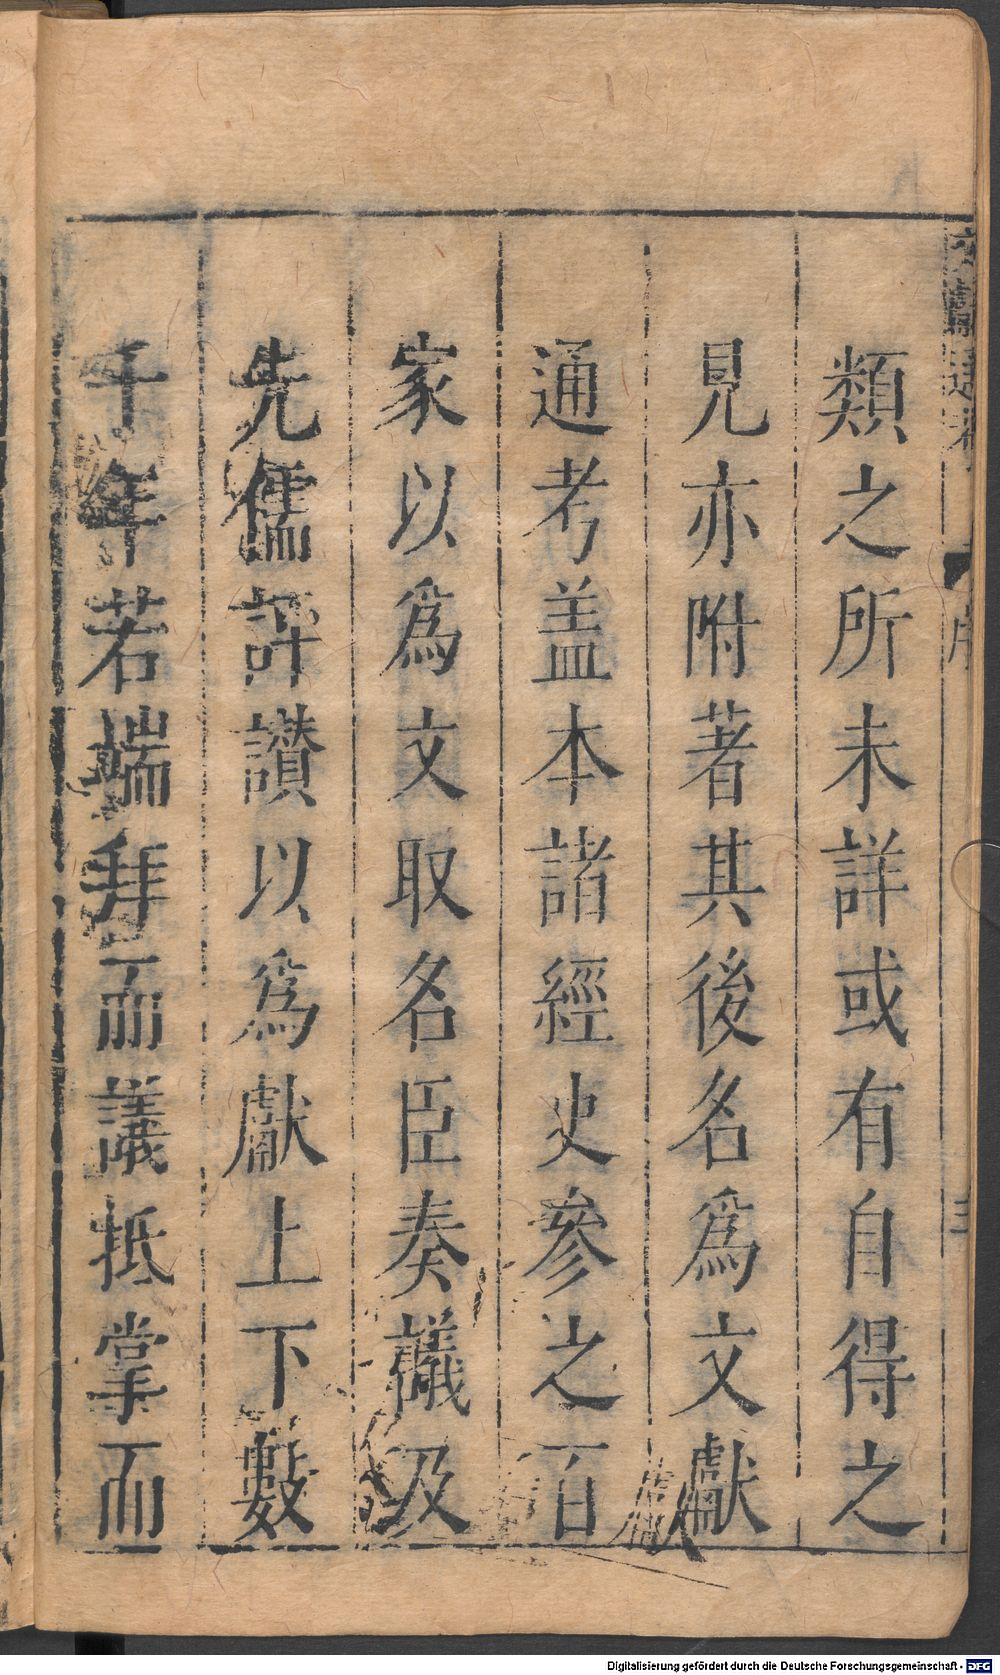 文獻通考
序
三
類之所未詳或有自得之
見亦附著其後名爲文獻
通考盖本諸經史參之百
家以爲文取名臣奏議及
先儒評讃以爲獻上下數
千年若端拜而議抵掌而
獻
Digitalisierung gefördert durch die Deutsche Forschungsgemeinschaft - DFG